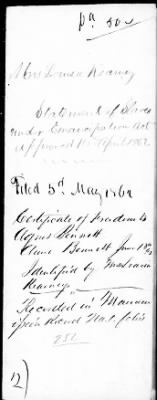 pd 50c
Mrs Louisa Kearney
Statement of Slaves
under Emancipation Act
approved 16 April 1862
Filed 3d May 1862
Certificate of Freedom to
Agnes Bennett
Bennett June
Identified by
Kearney
Recorded in Manum
ission Record No. 4 folio
12)